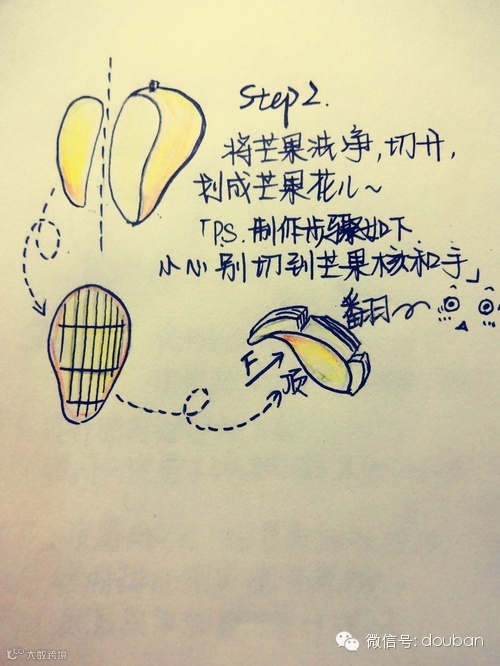 Step 2.
将芒果洗净,切开,
划成芒果花儿~
「P.S. 制作步骤如下
小心别切到芒果核和手」
翻~
F
顶
微信号: douban
大数跨境